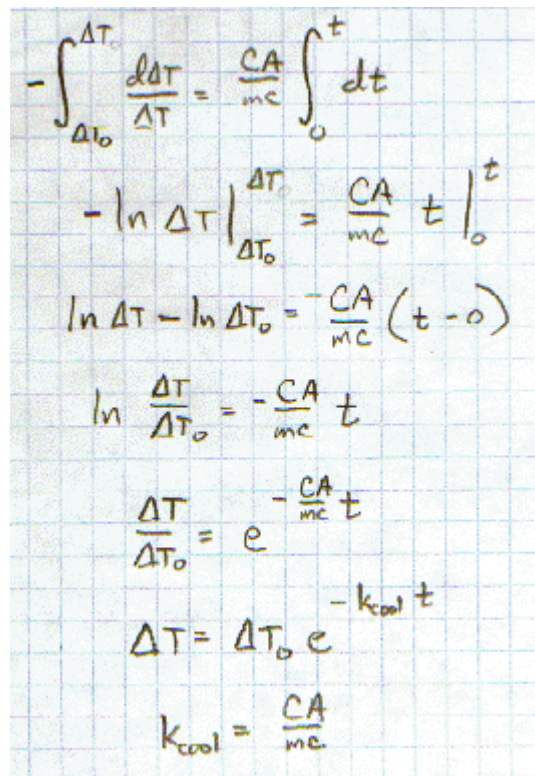 -∫_{ΔT₀}^{ΔT} dΔT/ΔT = CA/mc ∫_0^t dt
-ln ΔT |_{ΔT₀}^{ΔT} = CA/mc t |_0^t
ln ΔT - ln ΔT₀ = -CA/mc (t - 0)
ln ΔT/ΔT₀ = -CA/mc t
ΔT/ΔT₀ = e^{-CA/mc t}
ΔT = ΔT₀ e^{-k_{cool} t}
k_{cool} = CA/mc